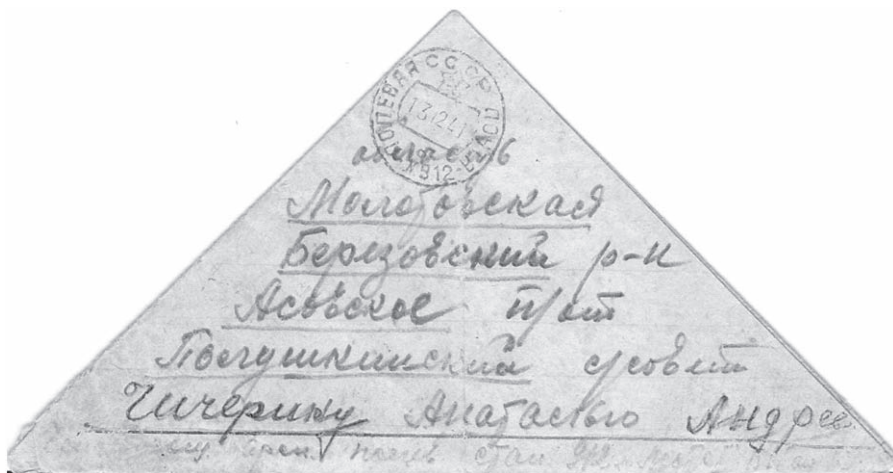 ПОЛЕВАЯ СССР
13 12 41
912
область
Молотовская
Березовский р-н
Асовское п/от
Полушкинский с/совет
Чичерину Анатасью Андрее